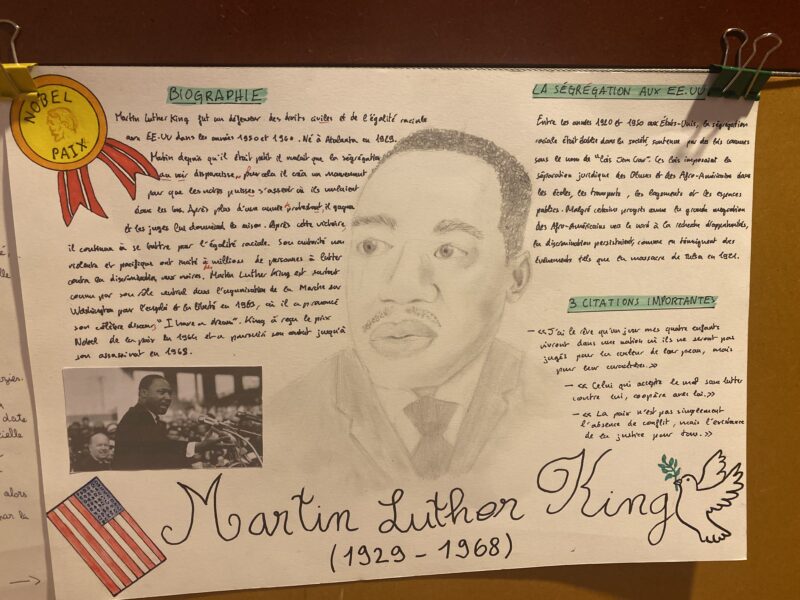 NOBEL
PAIX
BIOGRAPHIE
Martin Luther King fut un défenseur des droits civiles et de l'égalité raciale
aux EE.UU dans les années 1950 et 1960. Né à Atalanta en 1929.
Martin depuis qu'il était petit il voulait que la ségrégation
au voir disparaisse, pour cela il créa un mouvement
pour que les noires puisses s'asseoir où ils voulaient
dans les bus. Après plus d'un année protestant, il gagna
et les juges lui donnaient la raison. Après cette victoire,
il continua à se battre pour l'égalité raciale. Son autorité non
violente et pacifique ont incité à millions de personnes à lutter
contre la discrimination aux noires. Martin Luther King est surtout
connu par son rôle central dans l'organisation de la Marche sur
Washington par l'emploi et la liberté en 1963, où il a prononcé
son célèbre discours, "I have a dream". King a reçu le prix
Nobel de la paix en 1964 et a poursuivi son combat jusqu'à
son assassinat en 1968.
LA SÉGRÉGATION AUX EE.UU
Entre les années 1910 et 1950 aux États-Unis, la ségrégation
raciale était établie dans la société, soutenue par des lois connues
sous le nom de "Lois Jim Crow". Ces lois imposaient la
séparation juridique des Blancs et des Afro-Américains dans
les écoles, les transports, les logements et les espaces
publics. Malgré certains progrès comme la grande migration
des Afro-Américains vers le nord à la recherche d'opportunités,
la discrimination persistait, comme en témoignent des
événements tels que la massacre de Tulsa en 1921.
3 CITATIONS IMPORTANTES
- «J'ai le rêve qu'un jour mes quatre enfants
vivront dans une nation où ils ne seront pas
jugés pour la couleur de leur peau, mais
pour leur caractère.»
- «Celui qui accepte le mal sans lutter
contre lui, coopère avec lui.»
- «La paix n'est pas simplement
l'absence de conflit, mais l'existence
de la justice pour tous.»
Martin Luther King
(1929 - 1968)
date
alors